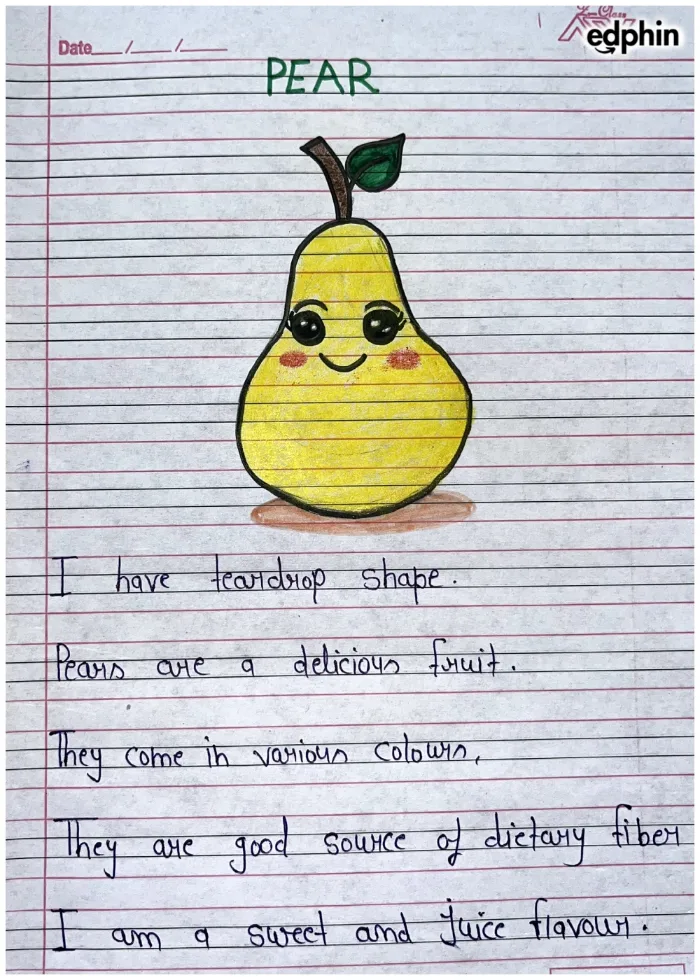 Date__/__/__
edphin
PEAR
I have teardrop shape.
Pears are a delicious fruit.
They come in various colours,
They are good source of dietary fiber
I am a sweet and juice flavour.